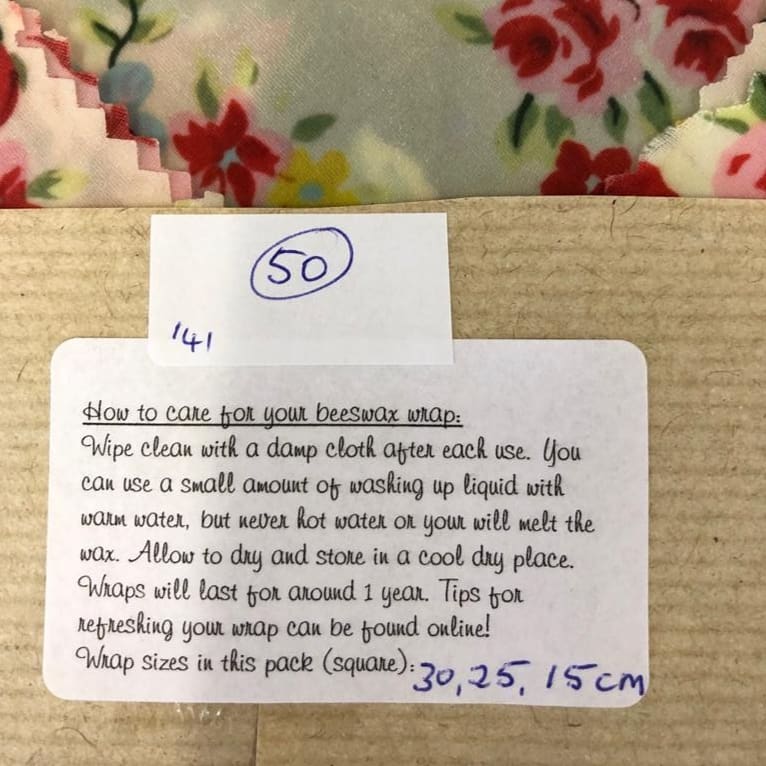 50
'41
How to care for your beeswax wrap:
Wipe clean with a damp cloth after each use. You
can use a small amount of washing up liquid with
warm water, but never hot water or your will melt the
wax. Allow to dry and store in a cool dry place.
Wraps will last for around 1 year. Tips for
refreshing your wrap can be found online!
Wrap sizes in this pack (square): 30, 25, 15cm